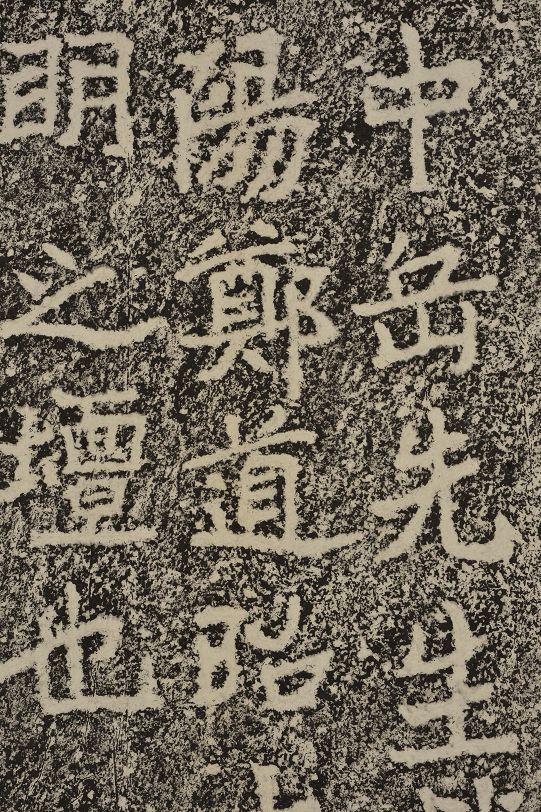 中岳先生
陽鄭道昭
明之壇也